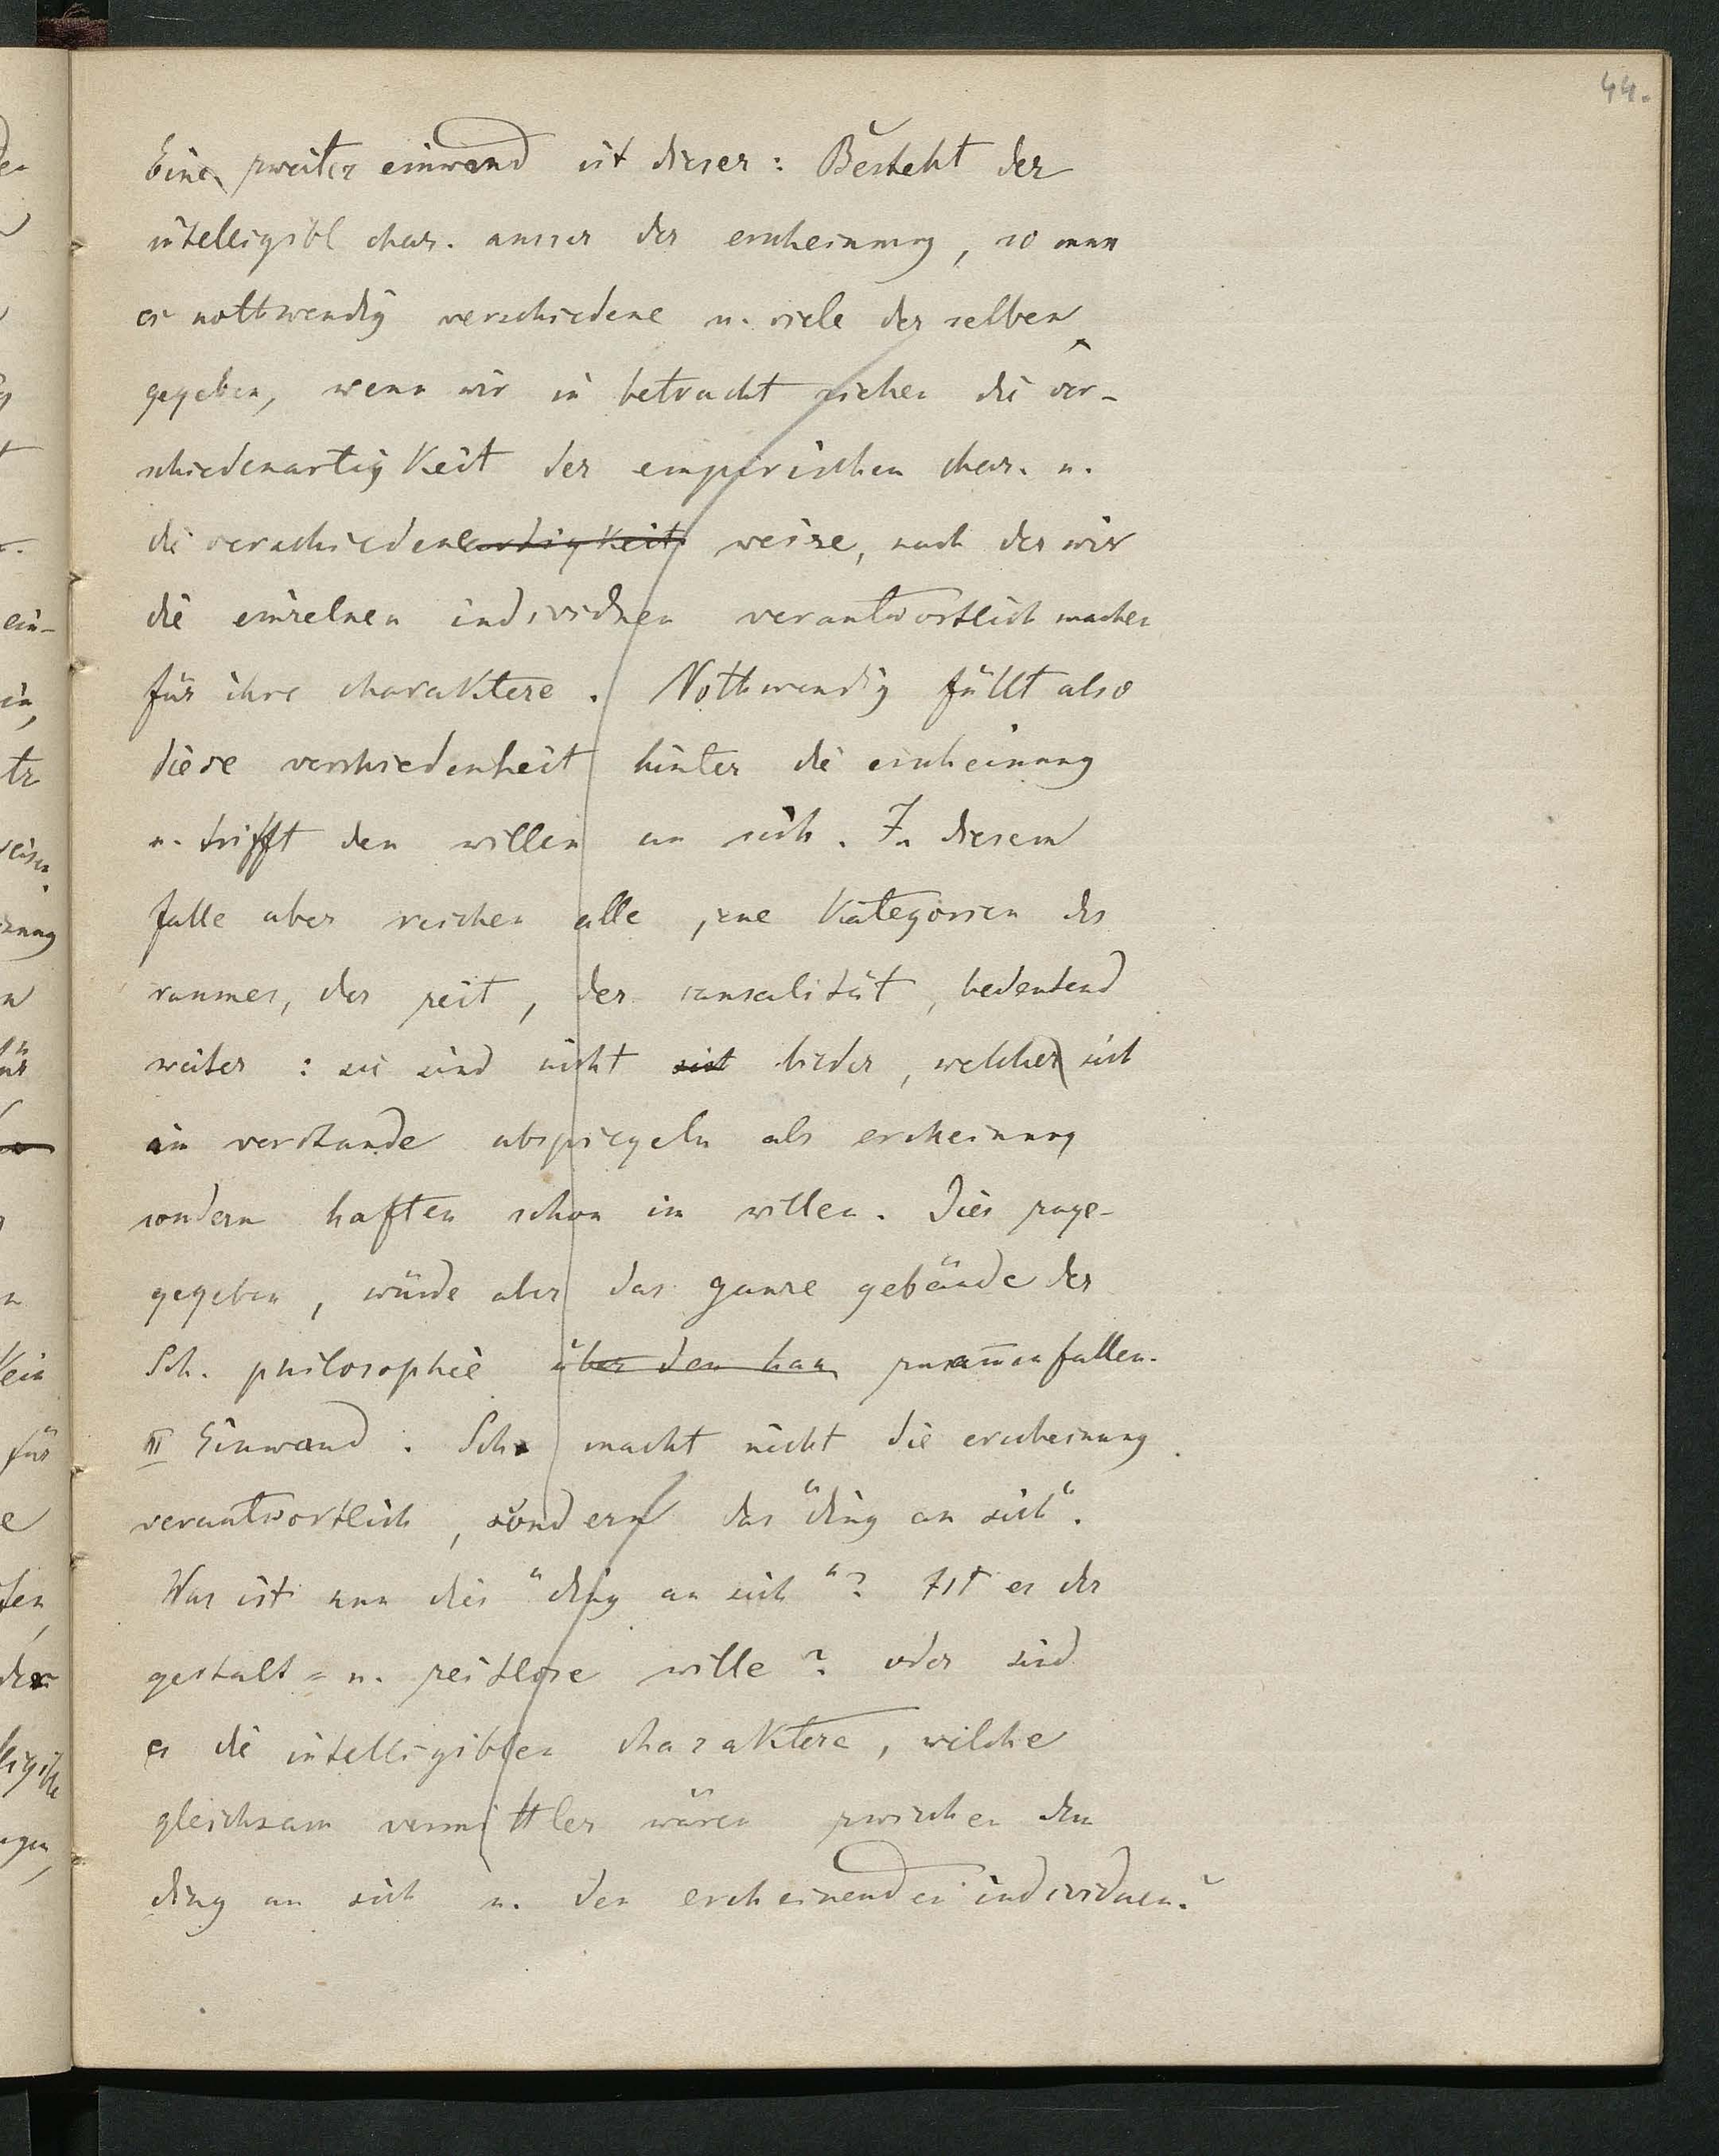 44.
Ein zweiter einwand ist dieser: Besteht der
intelligibl char. ausser der erscheinung, so muss
es nothwendig verschiedene u. viele der selben
gegeben, wenn wir in betracht ziehen die ver-
schiedenartigkeit der empirischen char. u.
die verschiedenartigkeit weise, nach der wir
die einzelnen individuen verantwortlich machen
für ihre charaktere. Nothwendig fällt also
diese verschiedenheit hinter die erscheinung
u. trifft den willen an sich. In diesem
falle aber reichen alle jene Kategorien des
raumes, der zeit, der causalität, bedeutend
weiter: sie sind nicht sich bilder, welche sich
im verstande abspiegeln als erscheinung
sondern haften schon im willen. Dies zuge-
gegeben, würde aber das ganze gebäude der
Sch. philosophie über den hau zusam̅enfallen.
III Einwand. Sch. macht nicht die erscheinung
verantwortlich, sondern das "ding an sich".
Was ist nun dies "ding an sich"? Ist es der
gestalt= u. zeitlose wille? oder sind
es die intelligiblen charaktere, welche
gleichsam vermittler wären zwischen dem
ding an sich u. den erscheinenden individuen?